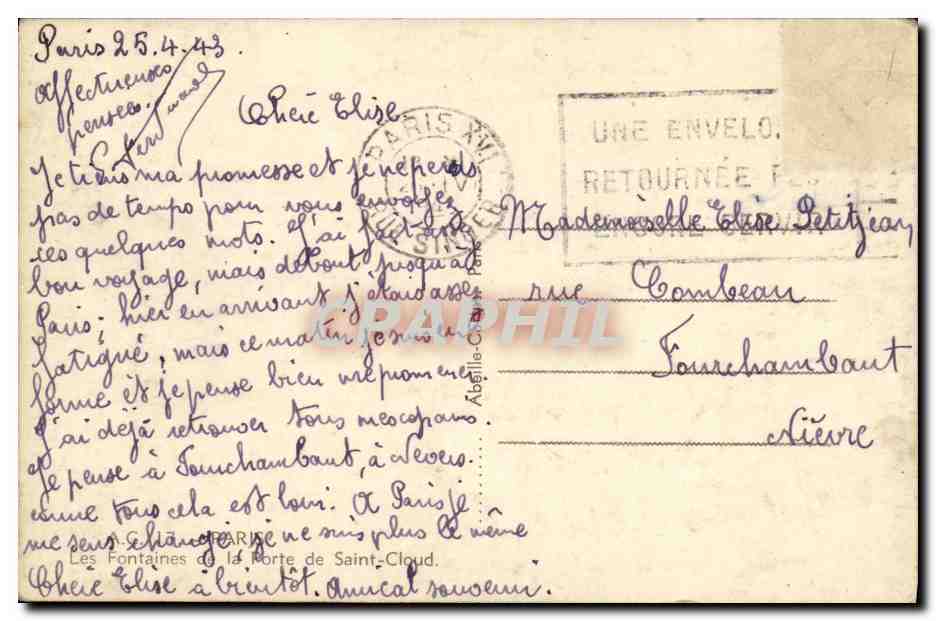 Paris 25.4.43.
Affectueuses
pensées.
Chère Elise
Je tiens ma promesse et je ne perds
pas de temps pour vous envoyer
ces quelques mots. J'ai fait un
bon voyage, mais debout jusqu'à
Paris; hier en arrivant j'étais assez
fatigué, mais ce matin je suis en
forme et je pense bien me promener.
J'ai déjà retrouver tous mes copains
Je pense à Fourchambaut, à Nevers.
comme tous cela est loin. A Paris je
me sens changé, je ne suis plus le même
Chère Elise à bientôt. Amical souvenir.
PARIS XVI
R. SINGER
UNE ENVELO
RETOURNÉE PEUT
ENCORE SERVIR
Mademoiselle Elise Petitjean
rue Combeau
Fourchambaut
Nièvre
PARIS
Les Fontaines de la Porte de Saint-Cloud.
CPAPHIL